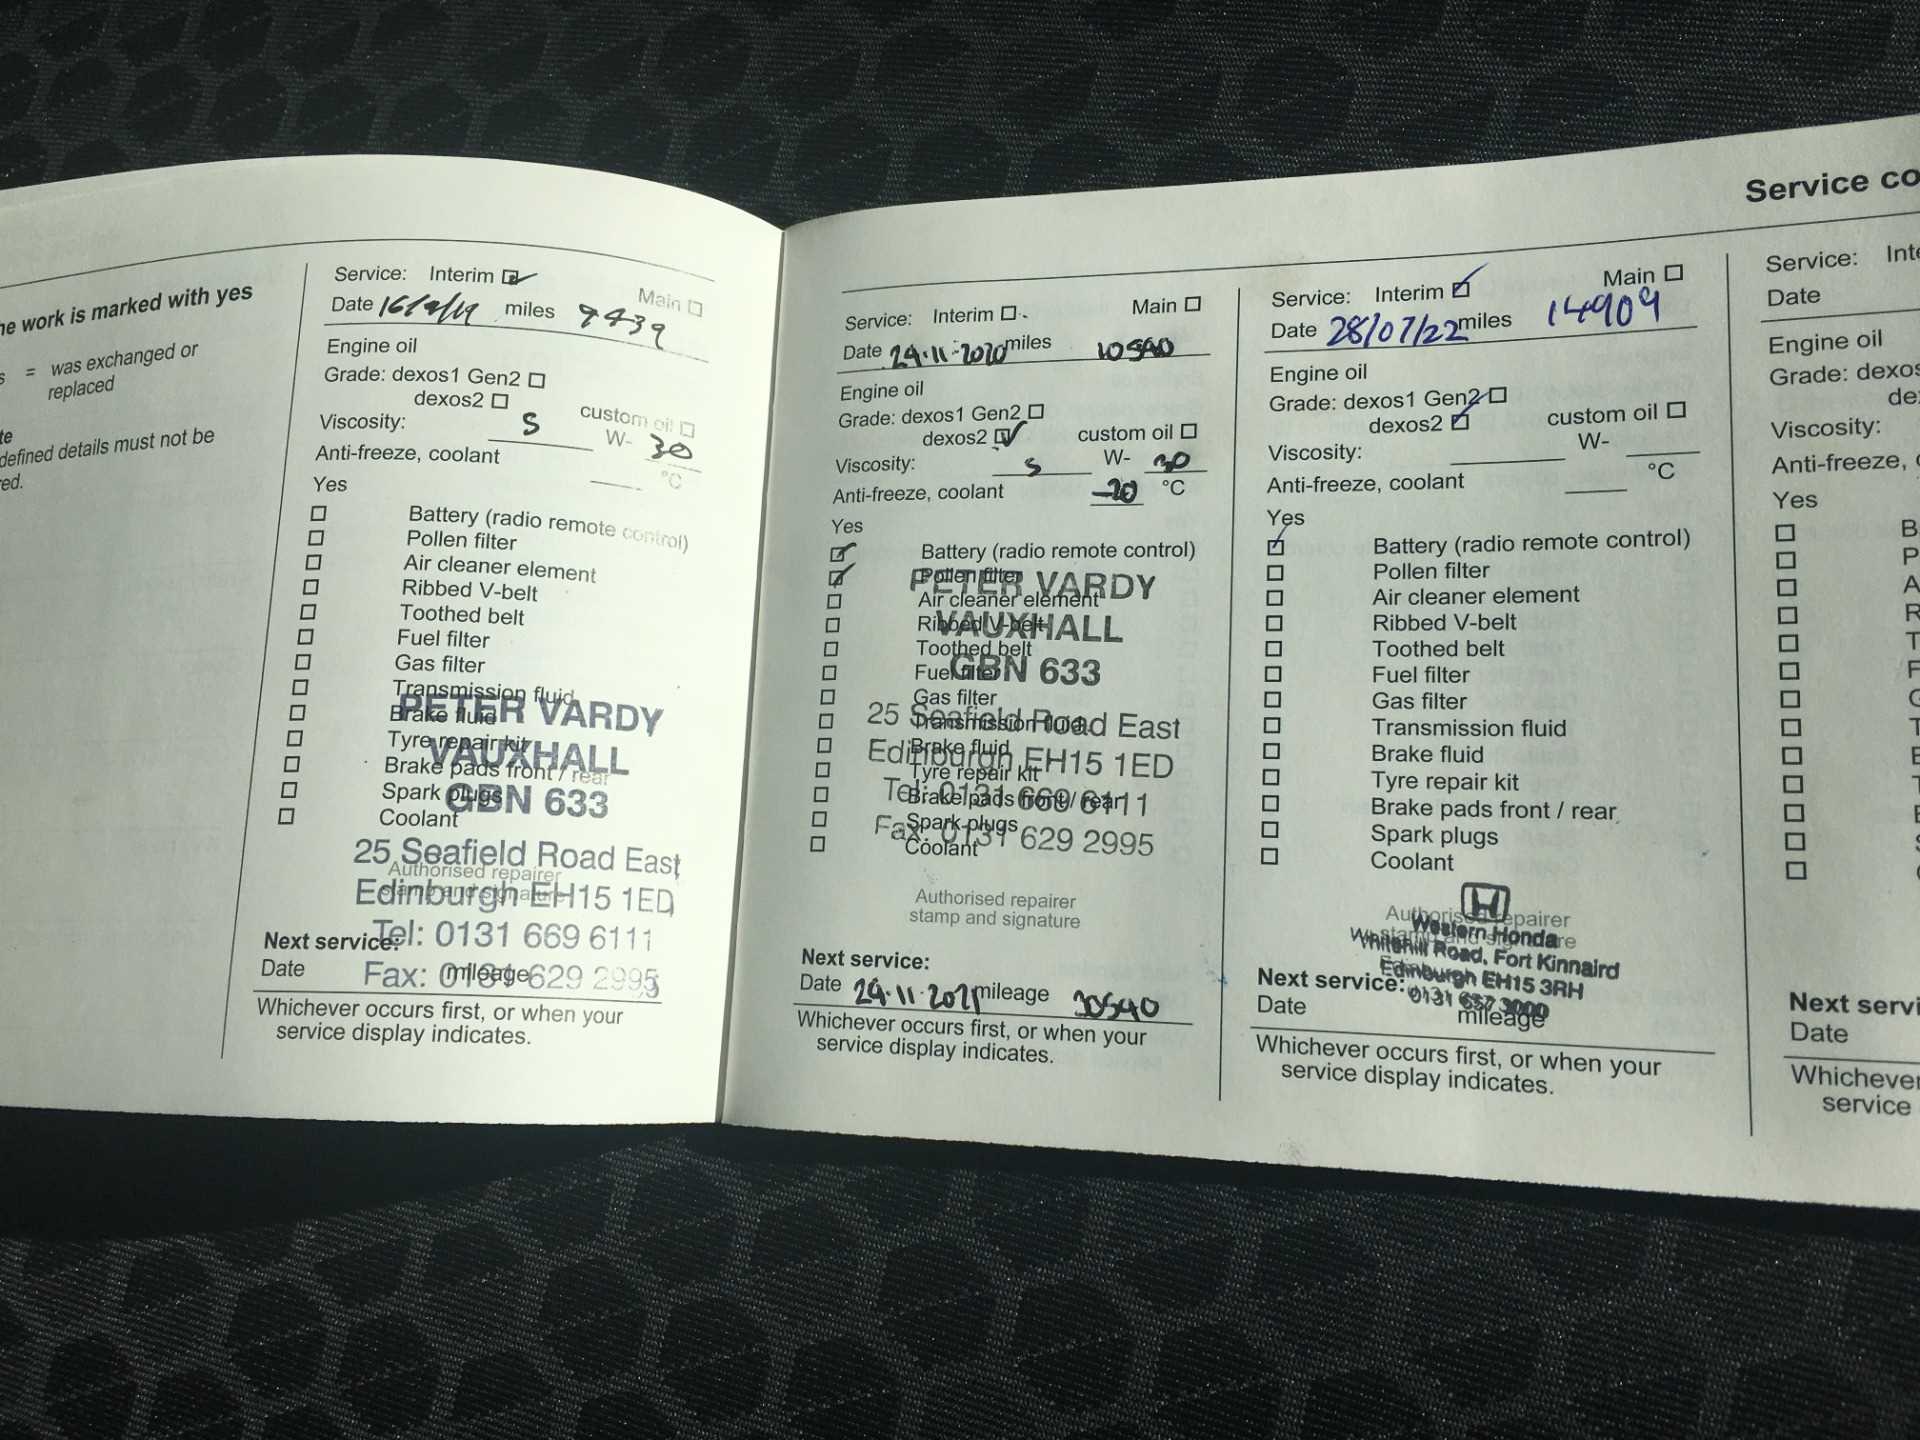 he work is marked with yes
s = was exchanged or
replaced
te
defined details must not be
red.
Service: Interim Main
Date 16/9/19 miles 9439
Engine oil
Grade: dexos1 Gen2
dexos2 custom oil
Viscosity: 5 W- 30
Anti-freeze, coolant °C
Yes
Battery (radio remote control)
Pollen filter
Air cleaner element
Ribbed V-belt
Toothed belt
Fuel filter
Gas filter
Transmission fluid
Brake fluid
Tyre repair kit
Brake pads front / rear
Spark plugs
Coolant
PETER VARDY
VAUXHALL
GBN 633
25 Seafield Road East
Edinburgh EH15 1ED
Tel: 0131 669 6111
Fax: 0131 629 2995
Authorised repairer
stamp and signature
Next service:
Date mileage
Whichever occurs first, or when your
service display indicates.
Service co
Service: Interim Main
Date 24.11.2020 miles 10540
Engine oil
Grade: dexos1 Gen2
dexos2 custom oil
Viscosity: 5 W- 30
Anti-freeze, coolant -20 °C
Yes
Battery (radio remote control)
Pollen filter
Air cleaner element
Ribbed V-belt
Toothed belt
Fuel filter
Gas filter
Transmission fluid
Brake fluid
Tyre repair kit
Brake pads front / rear
Spark plugs
Coolant
PETER VARDY
VAUXHALL
GBN 633
25 Seafield Road East
Edinburgh EH15 1ED
Tel: 0131 669 6111
Fax: 0131 629 2995
Authorised repairer
stamp and signature
Next service:
Date 24.11.2021 mileage 30540
Whichever occurs first, or when your
service display indicates.
Service: Interim Main
Date 28/07/22 miles 14909
Engine oil
Grade: dexos1 Gen2
dexos2 custom oil
Viscosity: W-
Anti-freeze, coolant °C
Yes
Battery (radio remote control)
Pollen filter
Air cleaner element
Ribbed V-belt
Toothed belt
Fuel filter
Gas filter
Transmission fluid
Brake fluid
Tyre repair kit
Brake pads front / rear
Spark plugs
Coolant
Authorised repairer
stamp and signature
Western Honda
Whitehill Road, Fort Kinnaird
Edinburgh EH15 3RH
0131 657 3000
Next service:
Date mileage
Whichever occurs first, or when your
service display indicates.
Service: Inte
Date
Engine oil
Grade: dexos
dex
Viscosity:
Anti-freeze, c
Yes
B
P
A
R
T
F
G
T
B
T
B
S
C
Next servi
Date
Whichever
service